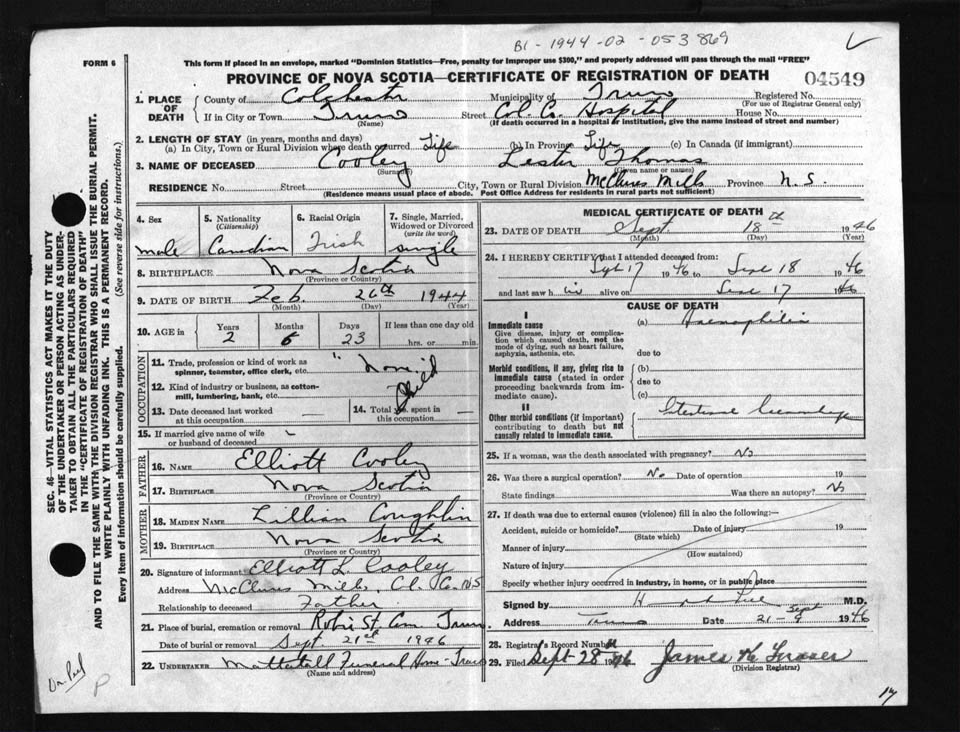 B1-1944-02-053869
FORM 6
This form if in an envelope, marked "Dominion Statistics—Free, penalty for improper use $300," and properly addressed will pass through the mail "FREE"
PROVINCE OF NOVA SCOTIA—CERTIFICATE OF REGISTRATION OF DEATH
04549
1. PLACE OF DEATH
County of Colchester Municipality of Truro Registered No.
(For use of Registrar General only)
If in City or Town Truro Street Col. Co. Hospital House No.
(Name) (If death occurred in a hospital or institution, give the name instead of street and number)
2. LENGTH OF STAY (in years, months and days)
(a) In City, Town or Rural Division where death occurred Life (b) In Province Life (c) In Canada (if immigrant)
3. NAME OF DECEASED Cooley Lester Thomas
(Surname) (Given name or names)
RESIDENCE No. Street City, Town or Rural Division McClures Mills Province N.S.
(Residence means usual place of abode. Post Office Address for residents in rural parts not sufficient)
4. Sex
male
5. Nationality
(Citizenship)
Canadian
6. Racial Origin
Irish
7. Single, Married, Widowed or Divorced
(write the word)
single
8. BIRTHPLACE Nova Scotia
(Province or Country)
9. DATE OF BIRTH Feb. 26th 1944
(Month) (Day) (Year)
10. AGE in
Years Months Days If less than one day old
2 6 23 hrs. or min.
OCCUPATION
11. Trade, profession or kind of work as spinner, teamster, office clerk, etc.
12. Kind of industry or business, as cotton-mill, lumbering, bank, etc.
Child
13. Date deceased last worked at this occupation —
14. Total yrs. spent in this occupation —
15. If married give name of wife or husband of deceased -
FATHER
16. NAME Elliott Cooley
17. BIRTHPLACE Nova Scotia
(Province or Country)
MOTHER
18. MAIDEN NAME Lillian Coughlin
19. BIRTHPLACE Nova Scotia
(Province or Country)
20. Signature of informant Elliott L. Cooley
Address McClures Mills, Col. Co. N.S
Relationship to deceased Father
21. Place of burial, cremation or removal Robie St. Cem. Truro
Date of burial or removal Sept. 21st 1946
22. UNDERTAKER Mattatall Funeral Home - Truro
(Name and address)
MEDICAL CERTIFICATE OF DEATH
23. DATE OF DEATH Sept. 18th 1946
(Month) (Day) (Year)
24. I HEREBY CERTIFY that I attended deceased from:
Sept 17 1946 to Sept 18 1946
and last saw him alive on Sept 17 1946
CAUSE OF DEATH
I
Immediate cause
Give disease, injury or complication which caused death, not the mode of dying, such as heart failure, asphyxia, asthenia, etc.
(a) Haemophilia
due to
Morbid conditions, if any, giving rise to immediate cause (stated in order proceeding backwards from immediate cause).
(b)
due to
(c)
II
Other morbid conditions (if important) contributing to death but not causally related to immediate cause.
25. If a woman, was the death associated with pregnancy? No
26. Was there a surgical operation? No Date of operation 19
State findings Was there an autopsy? No
27. If death was due to external causes (violence) fill in also the following:—
Accident, suicide or homicide? Date of injury 19
(State which)
Manner of injury
(How sustained)
Nature of injury
Specify whether injury occurred in industry, in home, or in public place
Signed by M.D.
Address Truro Date 21-9 Sept 1946
28. Registrar's Record Number
29. Filed Sept 28 1946 James H.
(Division Registrar)
SEC. 46—VITAL STATISTICS ACT MAKES IT THE DUTY
OF THE UNDERTAKER OR PERSON ACTING AS UNDER-
TAKER TO OBTAIN ALL THE PARTICULARS REQUIRED
IN THE "CERTIFICATE OF REGISTRATION OF DEATH"
AND TO FILE THE SAME WITH THE DIVISION REGISTRAR WHO SHALL ISSUE THE BURIAL PERMIT.
WRITE PLAINLY WITH UNFADING INK. THIS IS A PERMANENT RECORD.
Every item of information should be carefully supplied. (See reverse side for instructions.)
Dr. Peel
P
17